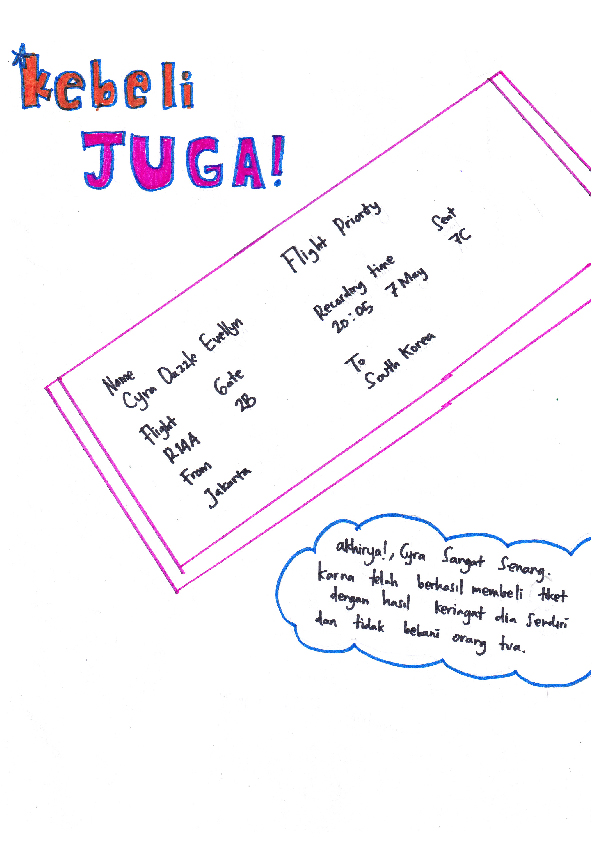 kebeli
JUGA!
Flight Priority
Name
Cyra Dazzle Evellyn
Recording time
20:05 7 May
Seat
7C
Flight
R14A
Gate
2B
From
Jakarta
To
South Korea
akhirya!, Cyra Sangat Senang.
karna telah berhasil membeli tiket
dengan hasil keriagat dia Sendiri
dan tidak bebani orang tua.